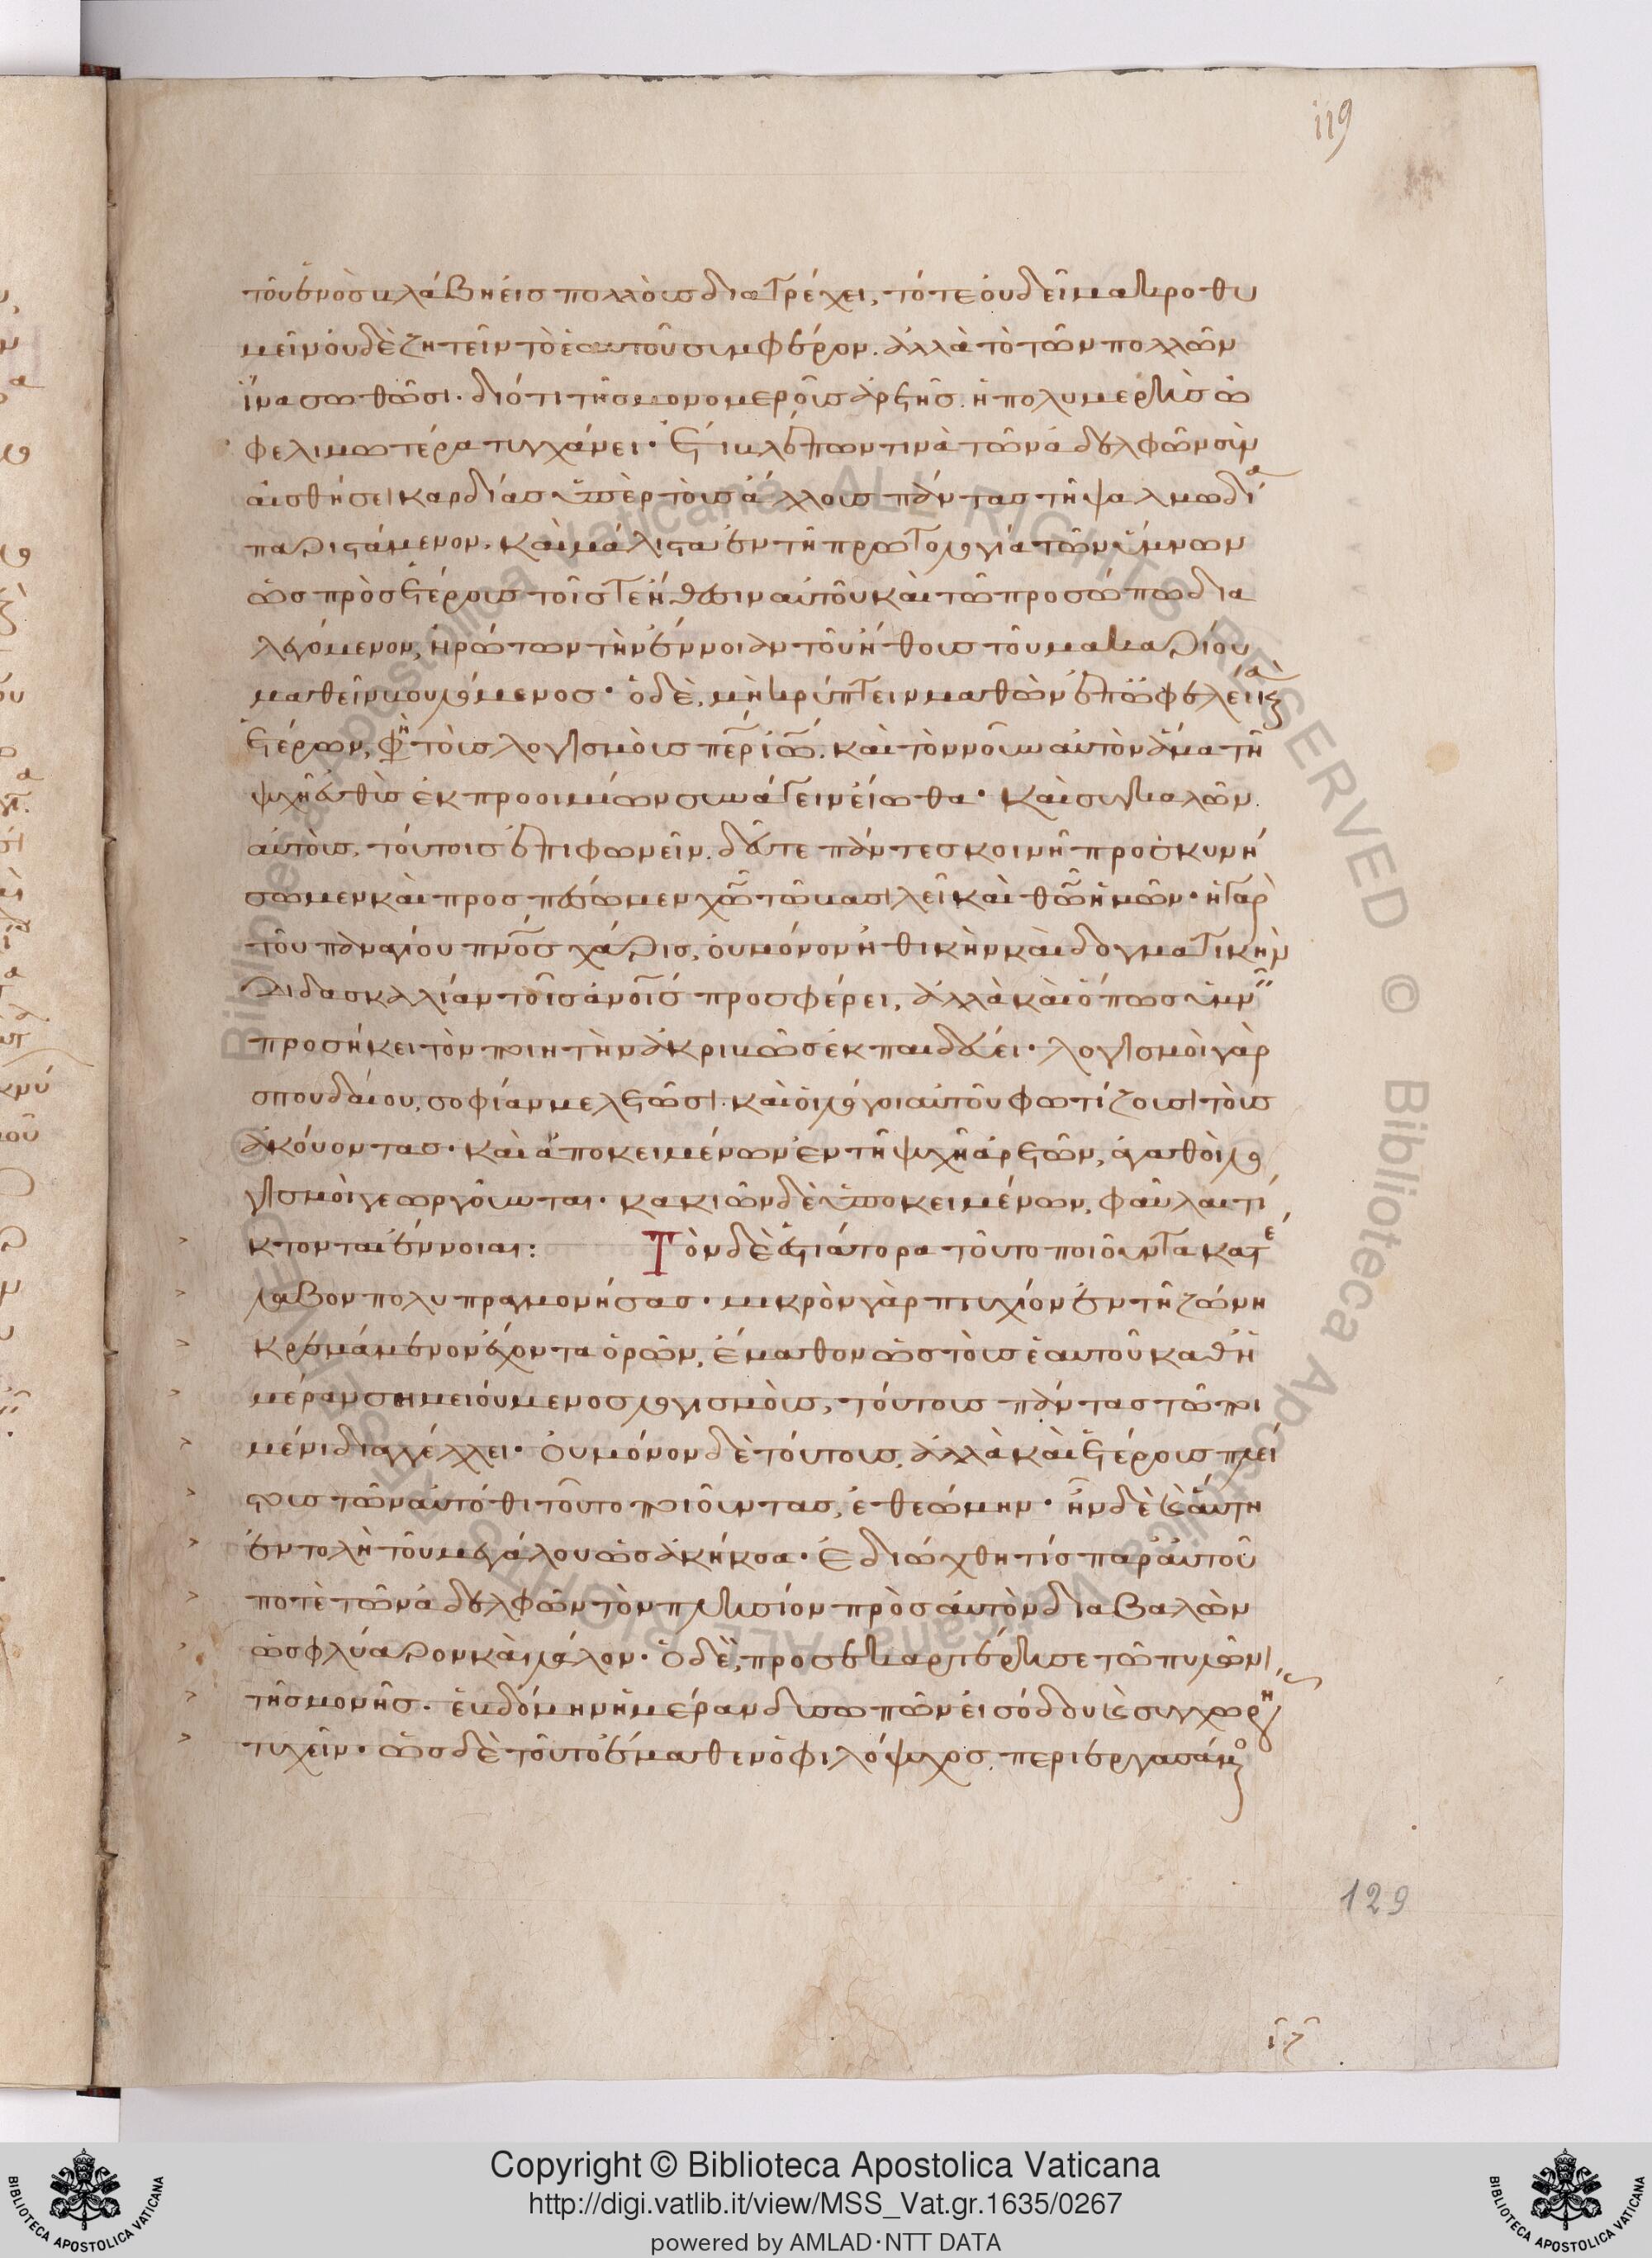 119
τοῦ ἑνὸς βλάβη εἰς πολλοὺς διατρέχει, τότε οὐ δεῖ μακροθυ
μεῖν οὐδὲ ζητεῖν τὸ ἑαυτοῦ συμφέρον. ἀλλὰ τὸ τῶν πολλῶν
ἵνα σωθῶσι· διότι τῆς μονομεροῦς ἀρετῆς. ἡ πολυμερὴς ὠ
φελιμωτέρα τυγχάνει· Εἰ βλέπων τινὰ τῶν ἀδελφῶν σὺν
αἰσθήσει καρδίας ὑπὲρ τοὺς ἄλλους πάντας τῇ ψαλμωδία
παριστάμενον, καὶ μάλιστα ἐν τῇ πρωτολογία τῶν ὕμνων
ὡς πρὸς ἑτέρους τοῖς τε ἤθεσιν αὐτοῦ καὶ τῶ προσώπω δια
λεγόμενον, ἠρώτων τὴν ἔννοιαν τοῦ ἤθους τοῦ μακαρίου
μαθεῖν βουλόμενος· ὁ δὲ, μὴ κρύπτειν μαθὼν ἐπ' ὠφελείας
ἑτέρων, φη τοὺς λογισμοὺς περ ιω. καὶ τὸν νοῦν αὐτὸν ἅμα τῇ
ψυχῇ εὐθὺς ἐκ προοιμίων συνάγειν εἴωθα· Καὶ συγκαλῶν
αὐτοὺς, τούτοις ἐπιφωνεῖν. δεῦτε πάντες κοινῇ προσκυνή
σωμεν καὶ προσπέσωμεν χω τῶ βασιλεῖ καὶ θω ἡμῶν· ἡ γὰρ
τοῦ παναγίου πνος χάρις, οὐ μόνον ἠθικὴν καὶ δογματικὴν
διδασκαλίαν τοῖς ανοις προσφέρει, ἀλλὰ καὶ ὅπως ὑμν
προσήκει τὸν ποιητὴν ἀκριβῶς ἐκπαιδεύει· λογισμοὶ γὰρ
σπουδαίου, σοφίαν μελετῶσι. καὶ οἱ λόγοι αὐτοῦ φωτίζουσι τοὺς
ἀκούοντας· καὶ ἀποκειμένων ἐν τῇ ψυχῇ ἀρετῶν, ἀγαθοὶ λο
γισμοὶ γεωργοῦνται· κακιῶν δὲ ὑποκειμένων, φαῦλαι τί
κτονται ἔννοιαι: Τὸν δὲ ἑστιάτορα τοῦτο ποιοῦντα κατέ
λαβον πολυπραγμονήσας· μικρὸν γὰρ πτυχίον ἐν τῇ ζώνη
κρεμάμενον ἔχοντα ὁρῶν, ἔμαθον ὡς τοὺς ἑαυτοῦ καθ' ἡ
μέραν σημειούμενος λογισμοὺς, τούτους πάντας τῶ ποι
μένι διαγγέλλει· Οὐ μόνον δὲ τούτους, ἀλλὰ καὶ ἑτέρους πλεί
στους τῶν αὐτόθι τοῦτο ποιοῦντας, ἐθεώμην· ἦν δὲ καὶ αὕτη
ἐντολὴ τοῦ μεγάλου ὡς ἀκήκοα· Ἐδιώχθη τίς παρ' αὐτοῦ
ποτὲ τῶν ἀδελφῶν τὸν πλησίον πρὸς αὐτὸν διαβαλὼν
ὡς φλύαρον καὶ λάλον· ὁ δὲ, προσεκαρτέρησε τῶ πυλῶνι
τῆς μονῆς. ἑβδόμην ἡμέραν δυσωπῶν εἰσόδου καὶ συγχωρη
τυχεῖν· ὡς δὲ τοῦτο ἔμαθεν ὁ φιλόψυχος, περιεργασάμ
129
Copyright © Biblioteca Apostolica Vaticana
http://digi.vatlib.it/view/MSS_Vat.gr.1635/0267
powered by AMLAD·NTT DATA